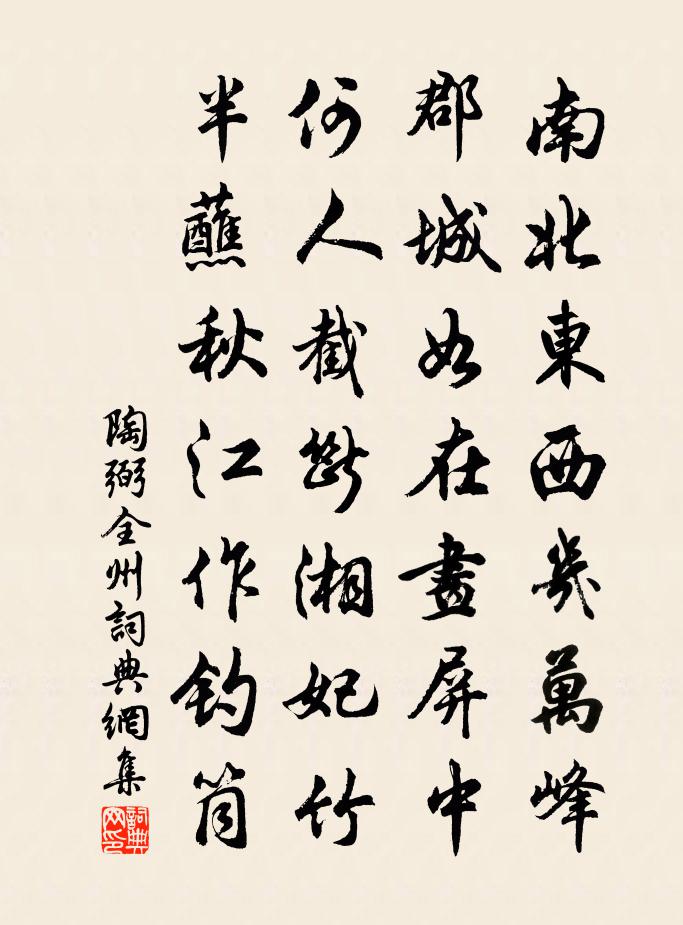 南北東西幾萬峰
郡城如在畫屏中
何人截斷湘妃竹
半蘸秋江作釣筒
陶弼全州詞典網集
詞典網印